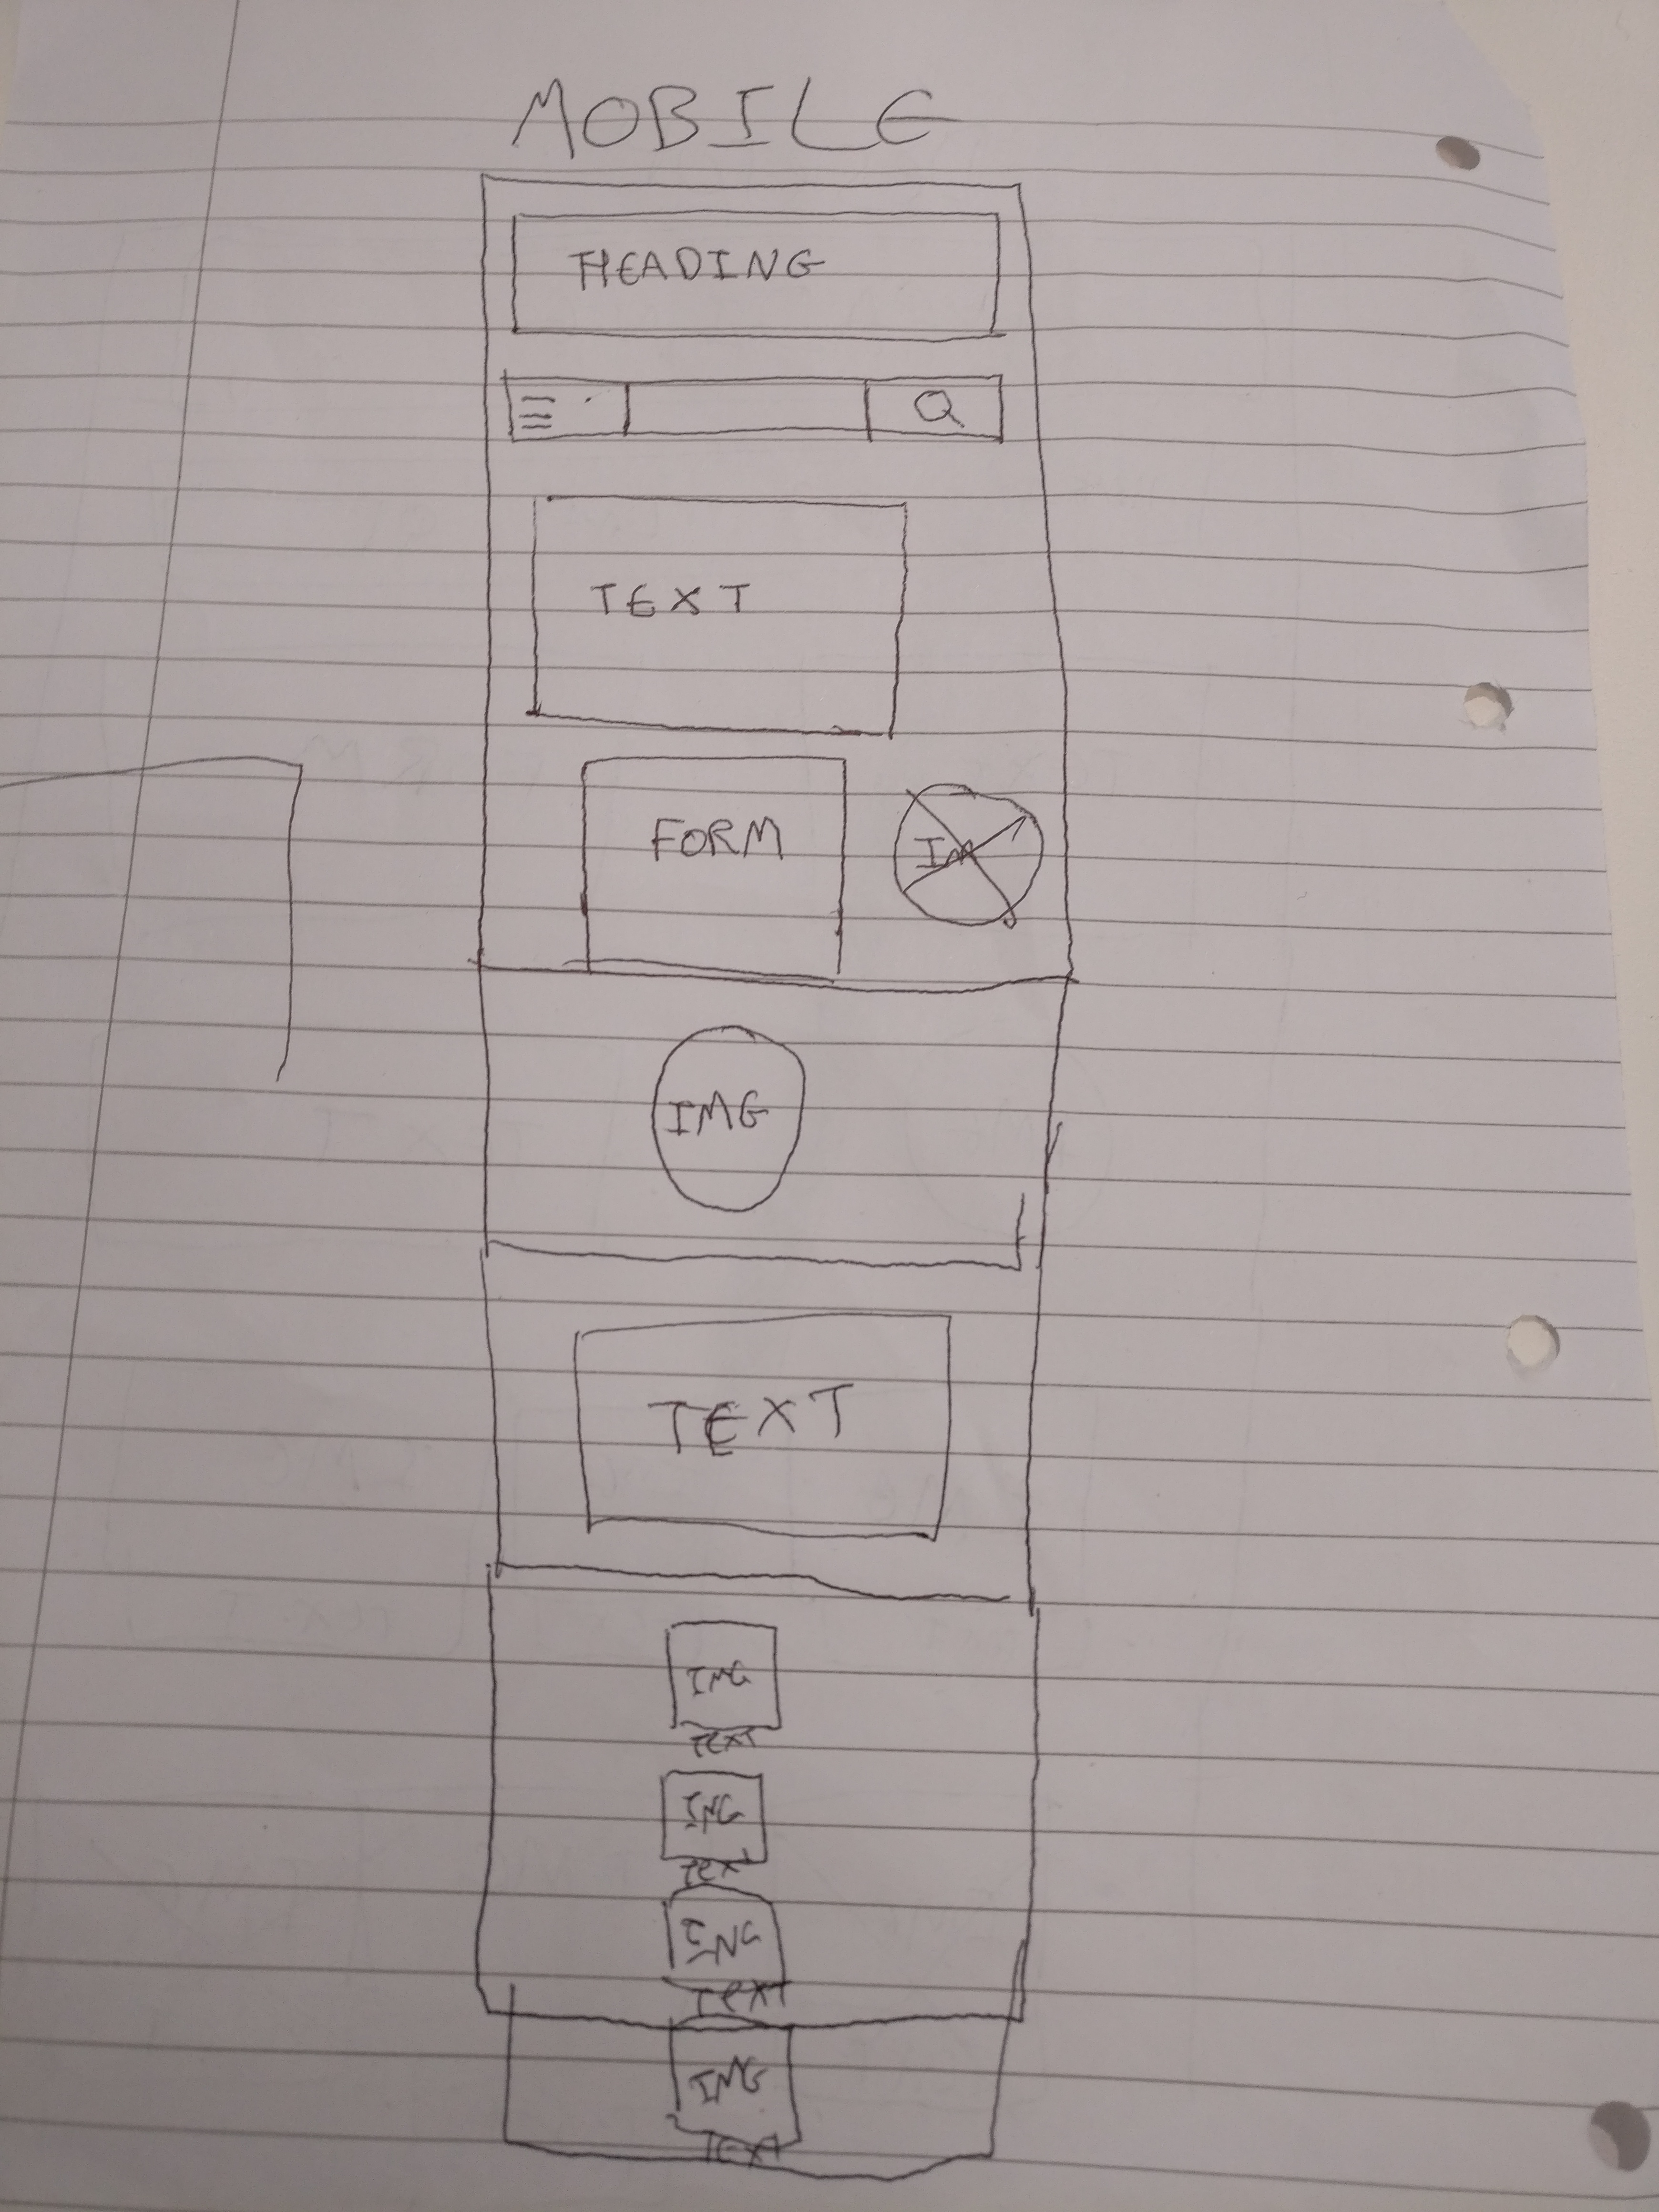 MOBILE
HEADING
TEXT
FORM
IM
IMG
TEXT
IMG
TEXT
IMG
TEXT
IMG
TEXT
IMG
TEXT